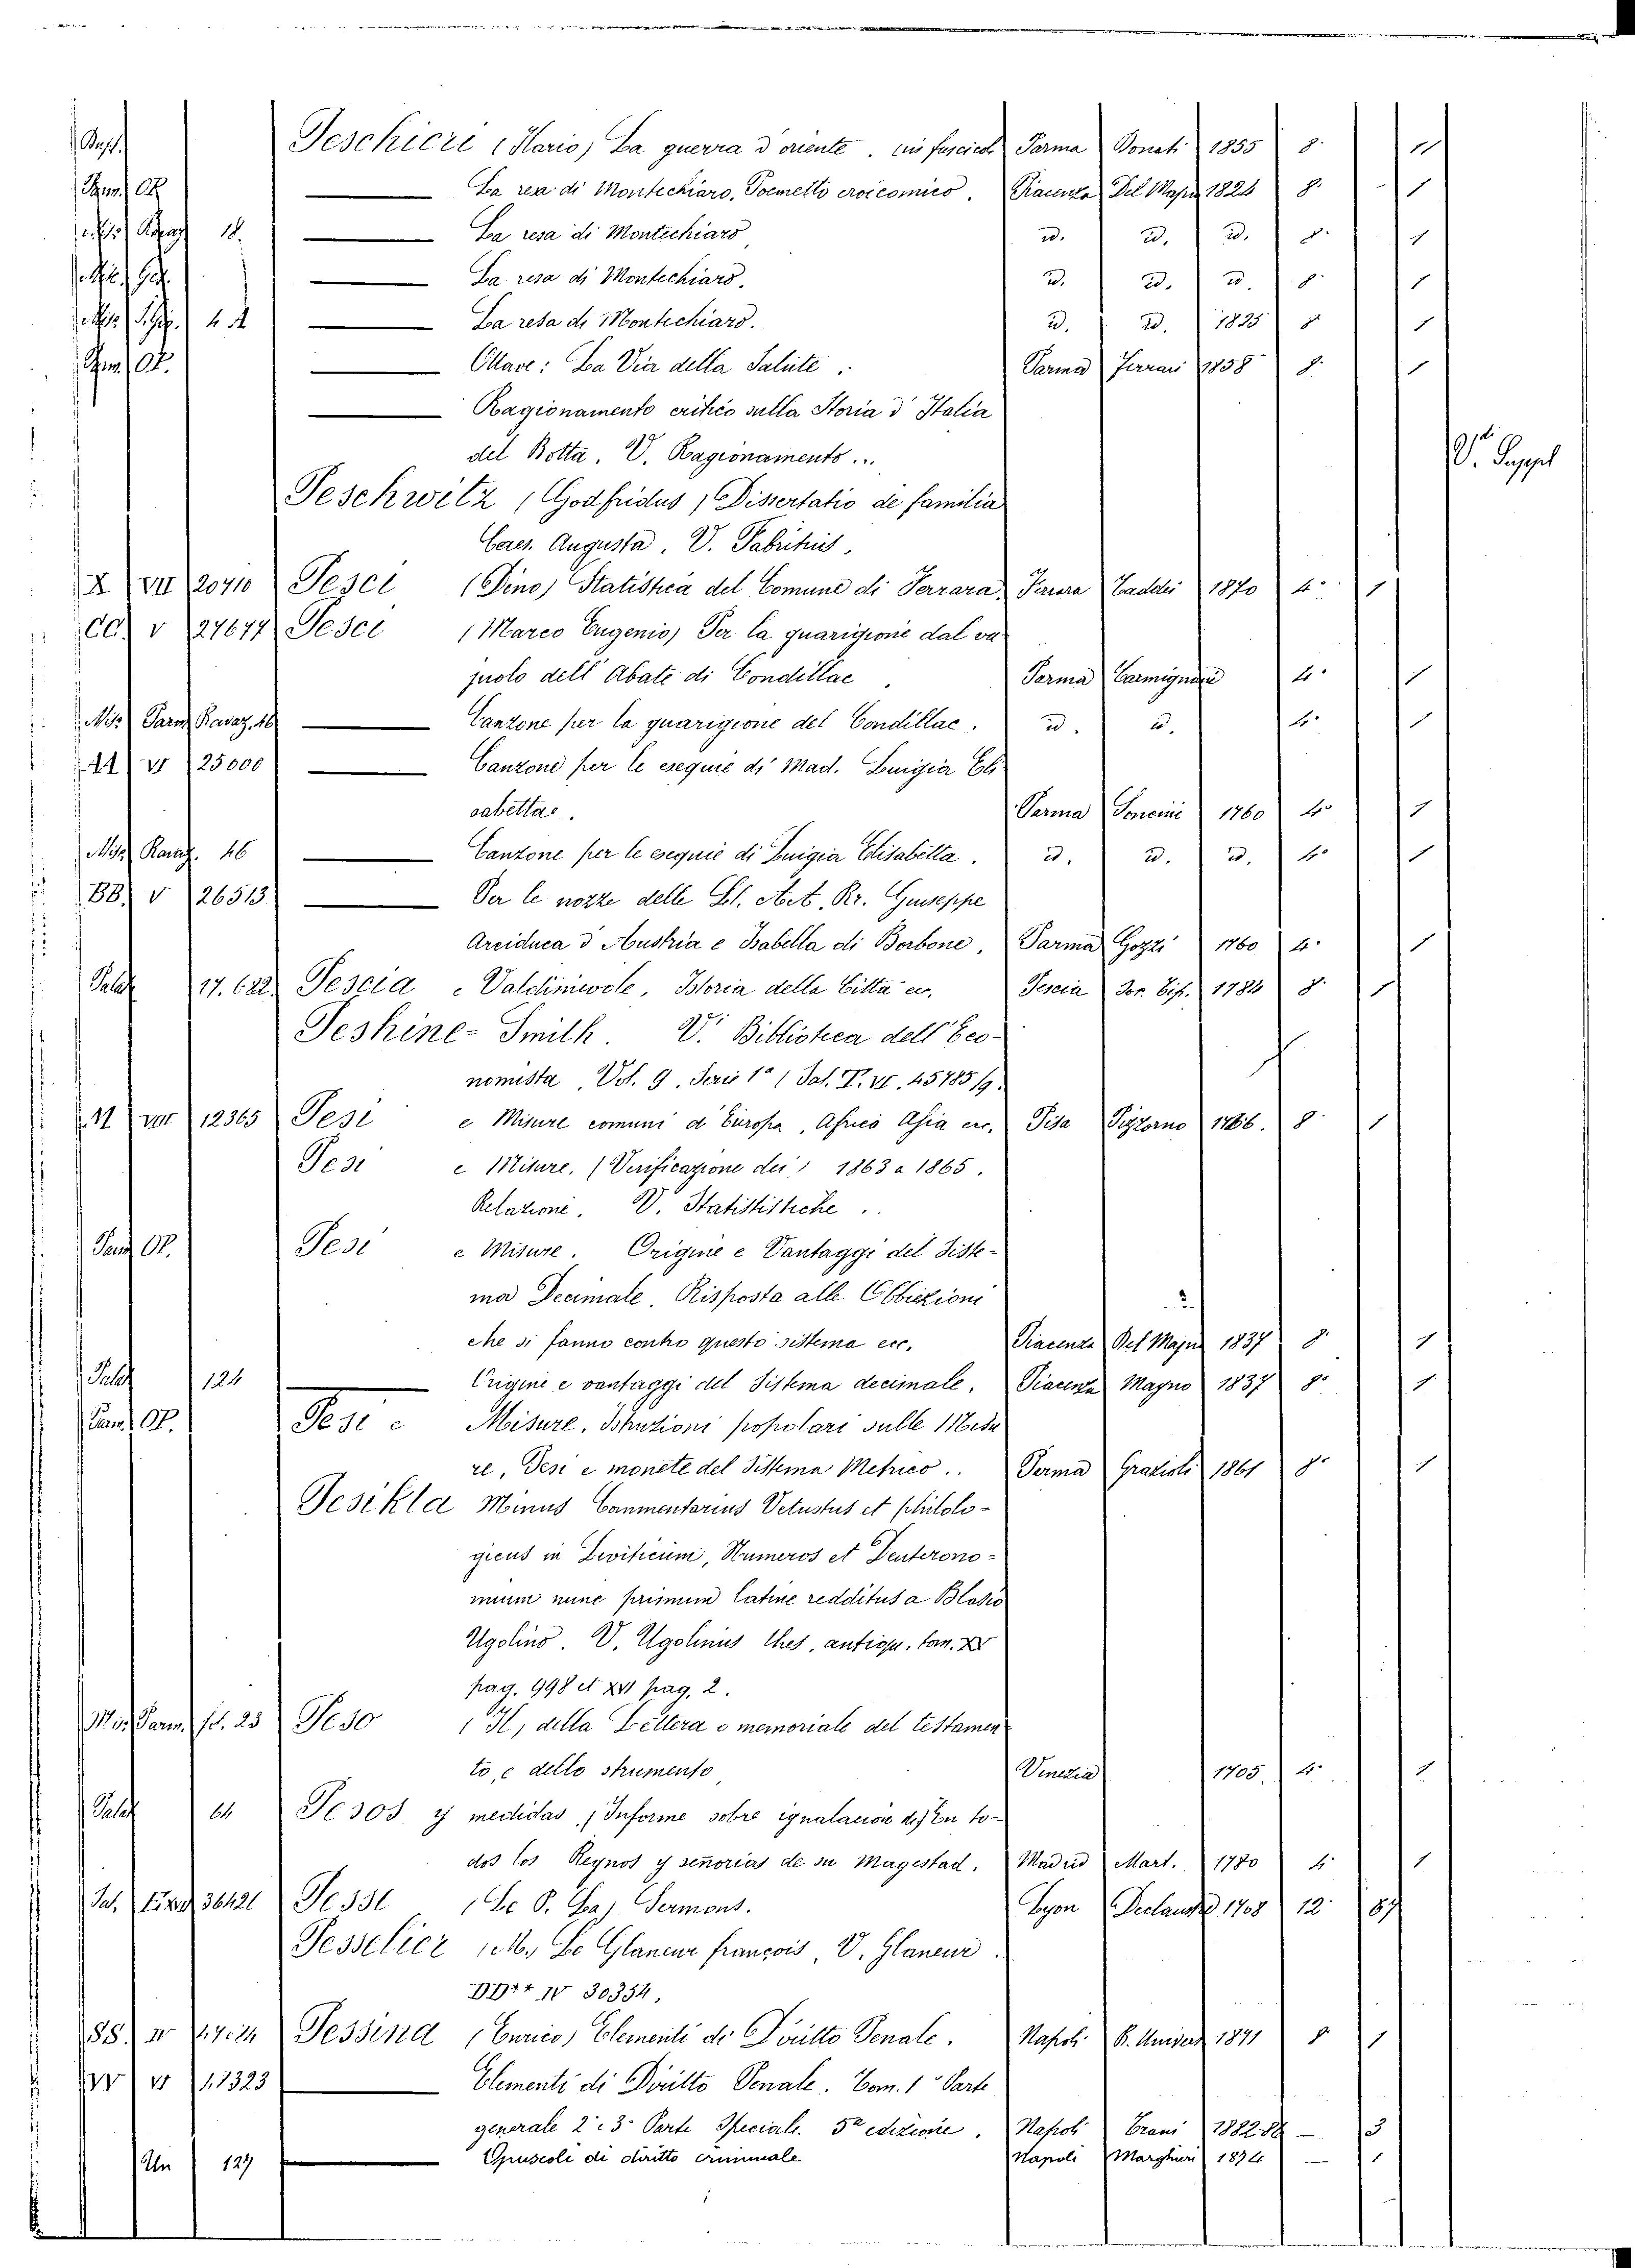 Peschieri (Ilario) La guerra d'oriente. un fascicolo Parma Donati 1855 8° 1
Parm. Op. La resa di Montechiaro, Poemetto eroicomico. Piacenza Del Majno 1824 8° 1
18. La resa di Montechiaro id. id. id. 8° 1
La resa di Montechiaro. id. id. id. 8° 1
La resa di Montechiaro. id. id. 1825 8° 1
Parm. Op. Ottave: La Via della Salute. Parma Ferrari 1858 8° 1
Ragionamento critico sulla Storia d'Italia
del Botta. V. Ragionamento... V. Suppl
Peschwitz (Godfridus) Dissertatio de familia
Caes. Augusta. V. Fabritius.
X VII 20710 Pesci (Dino) Statistica del Comune di Ferrara. Ferrara Taddei 1870 4° 1
CC. V 27677 Pesci (Marco Eugenio) Per la guarigione dal va
juolo dell'Abate di Condillac. Parma Carmignani 4° 1
Mis. Parm. Ravaz. 46 Canzone per la guarigione del Condillac. id. id. 4° 1
VI 25000 Canzone per le esequie di Mad. Luigia Eli
sabetta. Parma Soncini 1760 4° 1
Mis. Ravaz. 46 Canzone per le esequie di Luigia Elisabetta. id. id. id. 4° 1
BB. V 26513 Per le nozze delle Gl. Alt. Rr. Guiseppe
Arciduca d'Austria e Isabella di Borbone. Parma Gozzi 1760 4° 1
Palat 17.622 Pescia e Valdinievole, Istoria della Città ec. Pescia 1784 8° 1
Peshine-Smith. V. Biblioteca dell'Eco-
nomista, Vol. 9. Serie 1ª (Sal. T. VI. 45785/9.
11 VIII 12365 Pesi e Misure comuni d'Europa, Africa Asia ec. Pisa Pizzorno 1766. 8° 1
Pesi e Misure. (Verificazione dei) 1863 a 1865.
Relazione. V. Statististiche..
Parm. Op. Pesi e Misure. Origine e Vantaggi del Siste-
ma Decimale. Risposta alle Obbiezioni
che si fanno contro questo sistema ecc. Piacenza Del Majno 1837 8° 1
Palat 124 Origine e vantaggi del Sistema decimale. Piacenza Mayno 1837 8° 1
Parm. Op. Pesi e Misure. Istruzioni popolari sulle Misu
re, Pesi e monete del Sistema Metrico.. Parma Grazioli 1861 8° 1
Pesikta Minus Commentarius Vetustus et philolo-
gicus in Leviticum, Numeros et Deuterono-
mium nunc primum latine redditus a Blasio
Ugolino. V. Ugolinus Thes. antiqu. tom. XV
pag. 998 et XVI pag. 2.
Mis. Parm. fol. 23 Peso (Il) della Lettera o memoriale del testamen
to, e dello strumento Venezia 1705. 4° 1
Palat 64 Pesos y medidas. (Informe sobre igualacion de) En to-
dos los Reynos y señorias de su Magestad. Madrid Mart. 1780 4° 1
Sal. 36421 Pesse (Le P. La) Sermons. Lyon Declaustre 1708 12° 87
Pesselier (M.) Le Glaneur françois. V. Glaneur.
DD** IV 30354.
88. IV Pessina (Enrico) Elementi di Diritto Penale. Napoli R. Univers. 1871 8° 1
VI 11323 Elementi di Diritto Penale. Tom. 1° Parte
generale 2° e 3° Parte Speciale. 5ª edizione. Napoli Trani 1882-86 — 3
Un 127 Opuscoli di diritto criminale Napoli Marghieri 1874 — 1